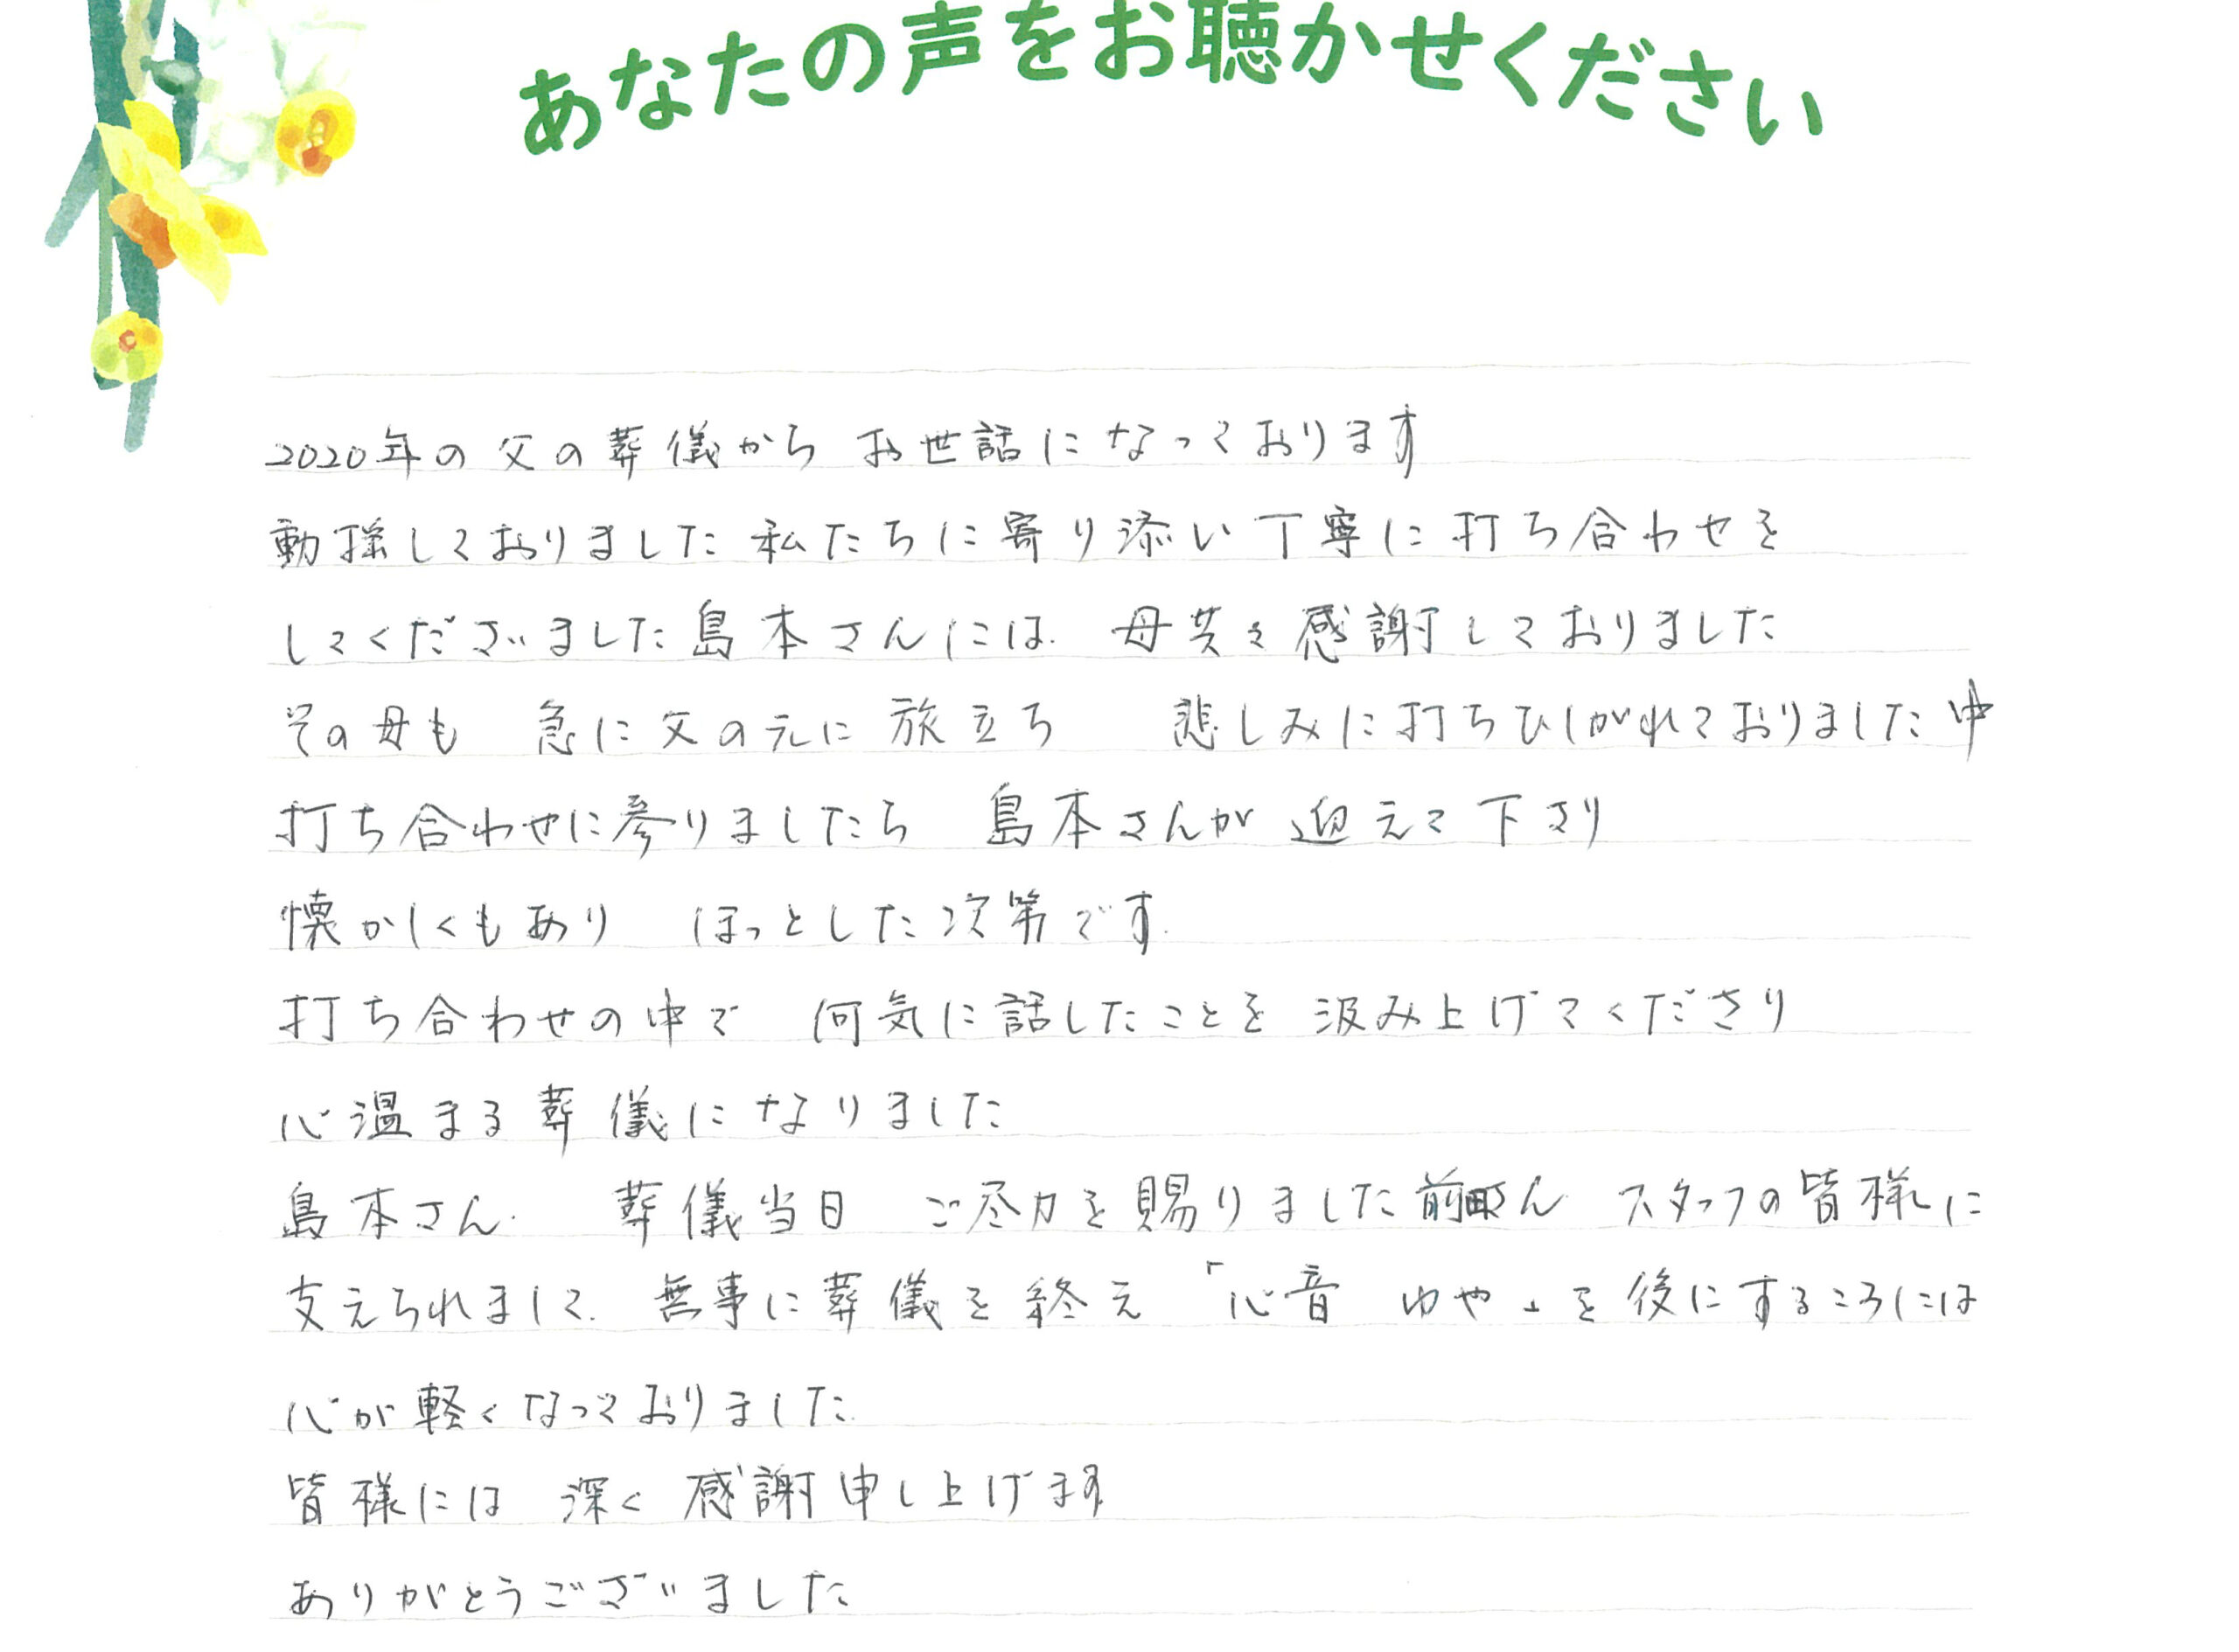 あなたの声をお聴かせください
2020年の父の葬儀から お世話になっております
動揺しておりました私たちに寄り添い丁寧に打ち合わせを
してくださいました島本さんには 母共々感謝しておりました
その母も 急に父の元に旅立ち 悲しみに打ちひしがれておりました中
打ち合わせに参りましたら 島本さんが迎えて下さり
懐かしくもあり ほっとした次第です
打ち合わせの中で 何気に話したことを汲み上げてくださり
心温まる葬儀になりました
島本さん 葬儀当日 ご尽力を賜りました さん スタッフの皆様に
支えられまして 無事に葬儀を終え 「心音 ゆや」を後にするころには
心が軽くなっておりました
皆様には 深く感謝申し上げます
ありがとうございました